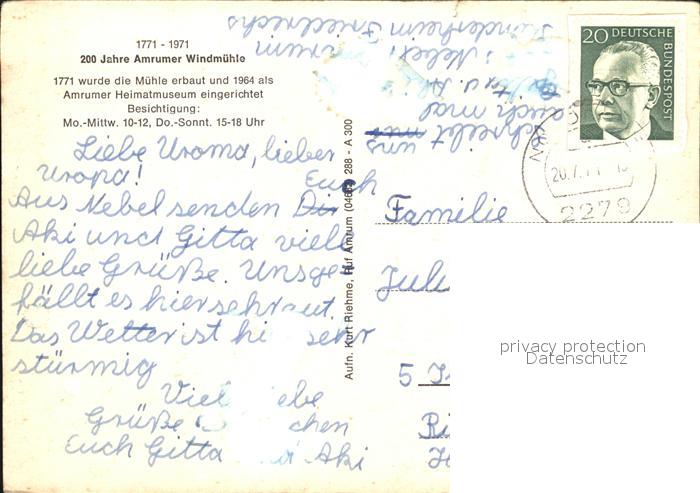 1771 - 1971
200 Jahre Amrumer Windmühle
1771 wurde die Mühle erbaut und 1964 als
Amrumer Heimatmuseum eingerichtet
Besichtigung:
Mo.-Mittw. 10-12, Do.-Sonnt. 15-18 Uhr
Liebe Uroma, lieber
Uropa! Euch
Aus Nebel senden Dir
Aki und Gitta viele
liebe Grüße. Uns ge-
fällt es hier sehr gut.
Das Wetter ist hi sehr
stürmig
Viel ebe
Grüße chen
Euch Gitta Aki
schreibt
uns
auch mal
Nebel
Friedrichs
Aufn. Kurt Riehme, Ruf Amrum 288 - A 300
20 DEUTSCHE
BUNDESPOST
20.7.71
2278
Familie
Jul
5
privacy protection
Datenschutz